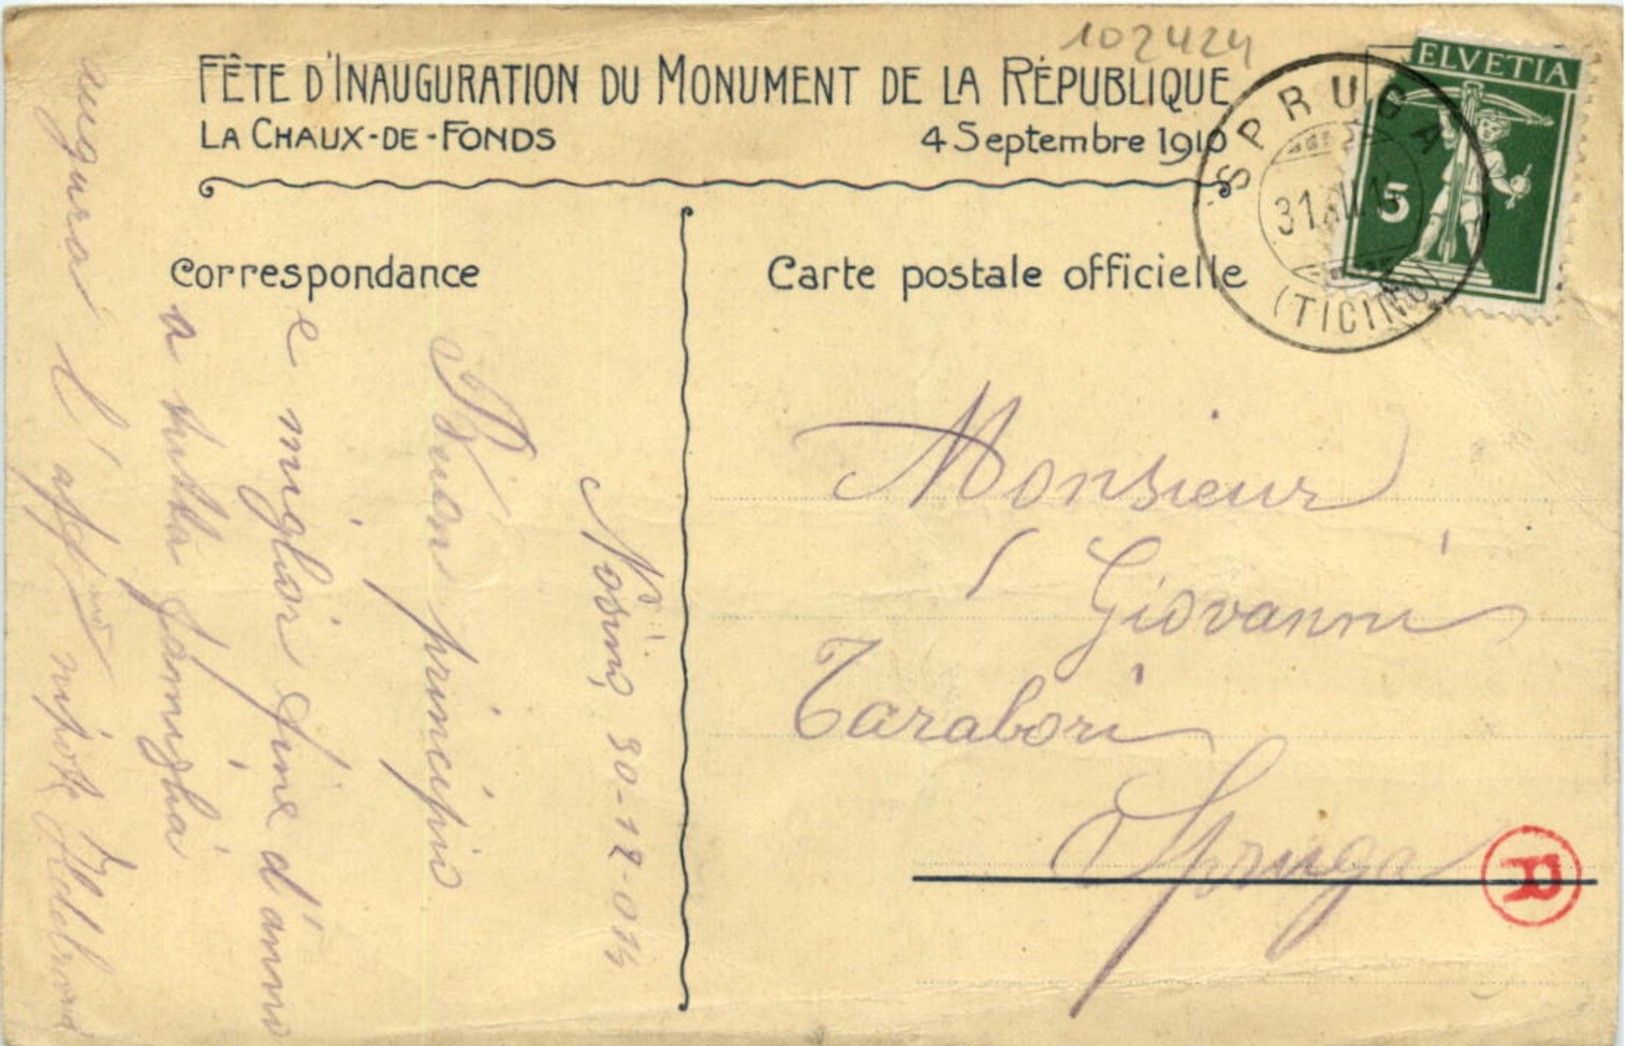 102424
FÊTE D'INAUGURATION DU MONUMENT DE LA RÉPUBLIQUE
LA CHAUX-DE-FONDS 4 Septembre 1910
HELVETIA
5
SPRUGA
31.XII.1
(TICINO)
Correspondance
Carte postale officielle
30-12-014
Buon principio
e miglior fine d'anno
a tutta famiglia
augurai l' aff.mo nipote
Monsieur
Giovanni
Tarabori
Spruga
R